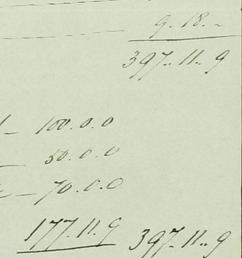 9.18.-
397.11.9
100.0.0
50.0.0
70.0.0
177.11.9 397.11.9